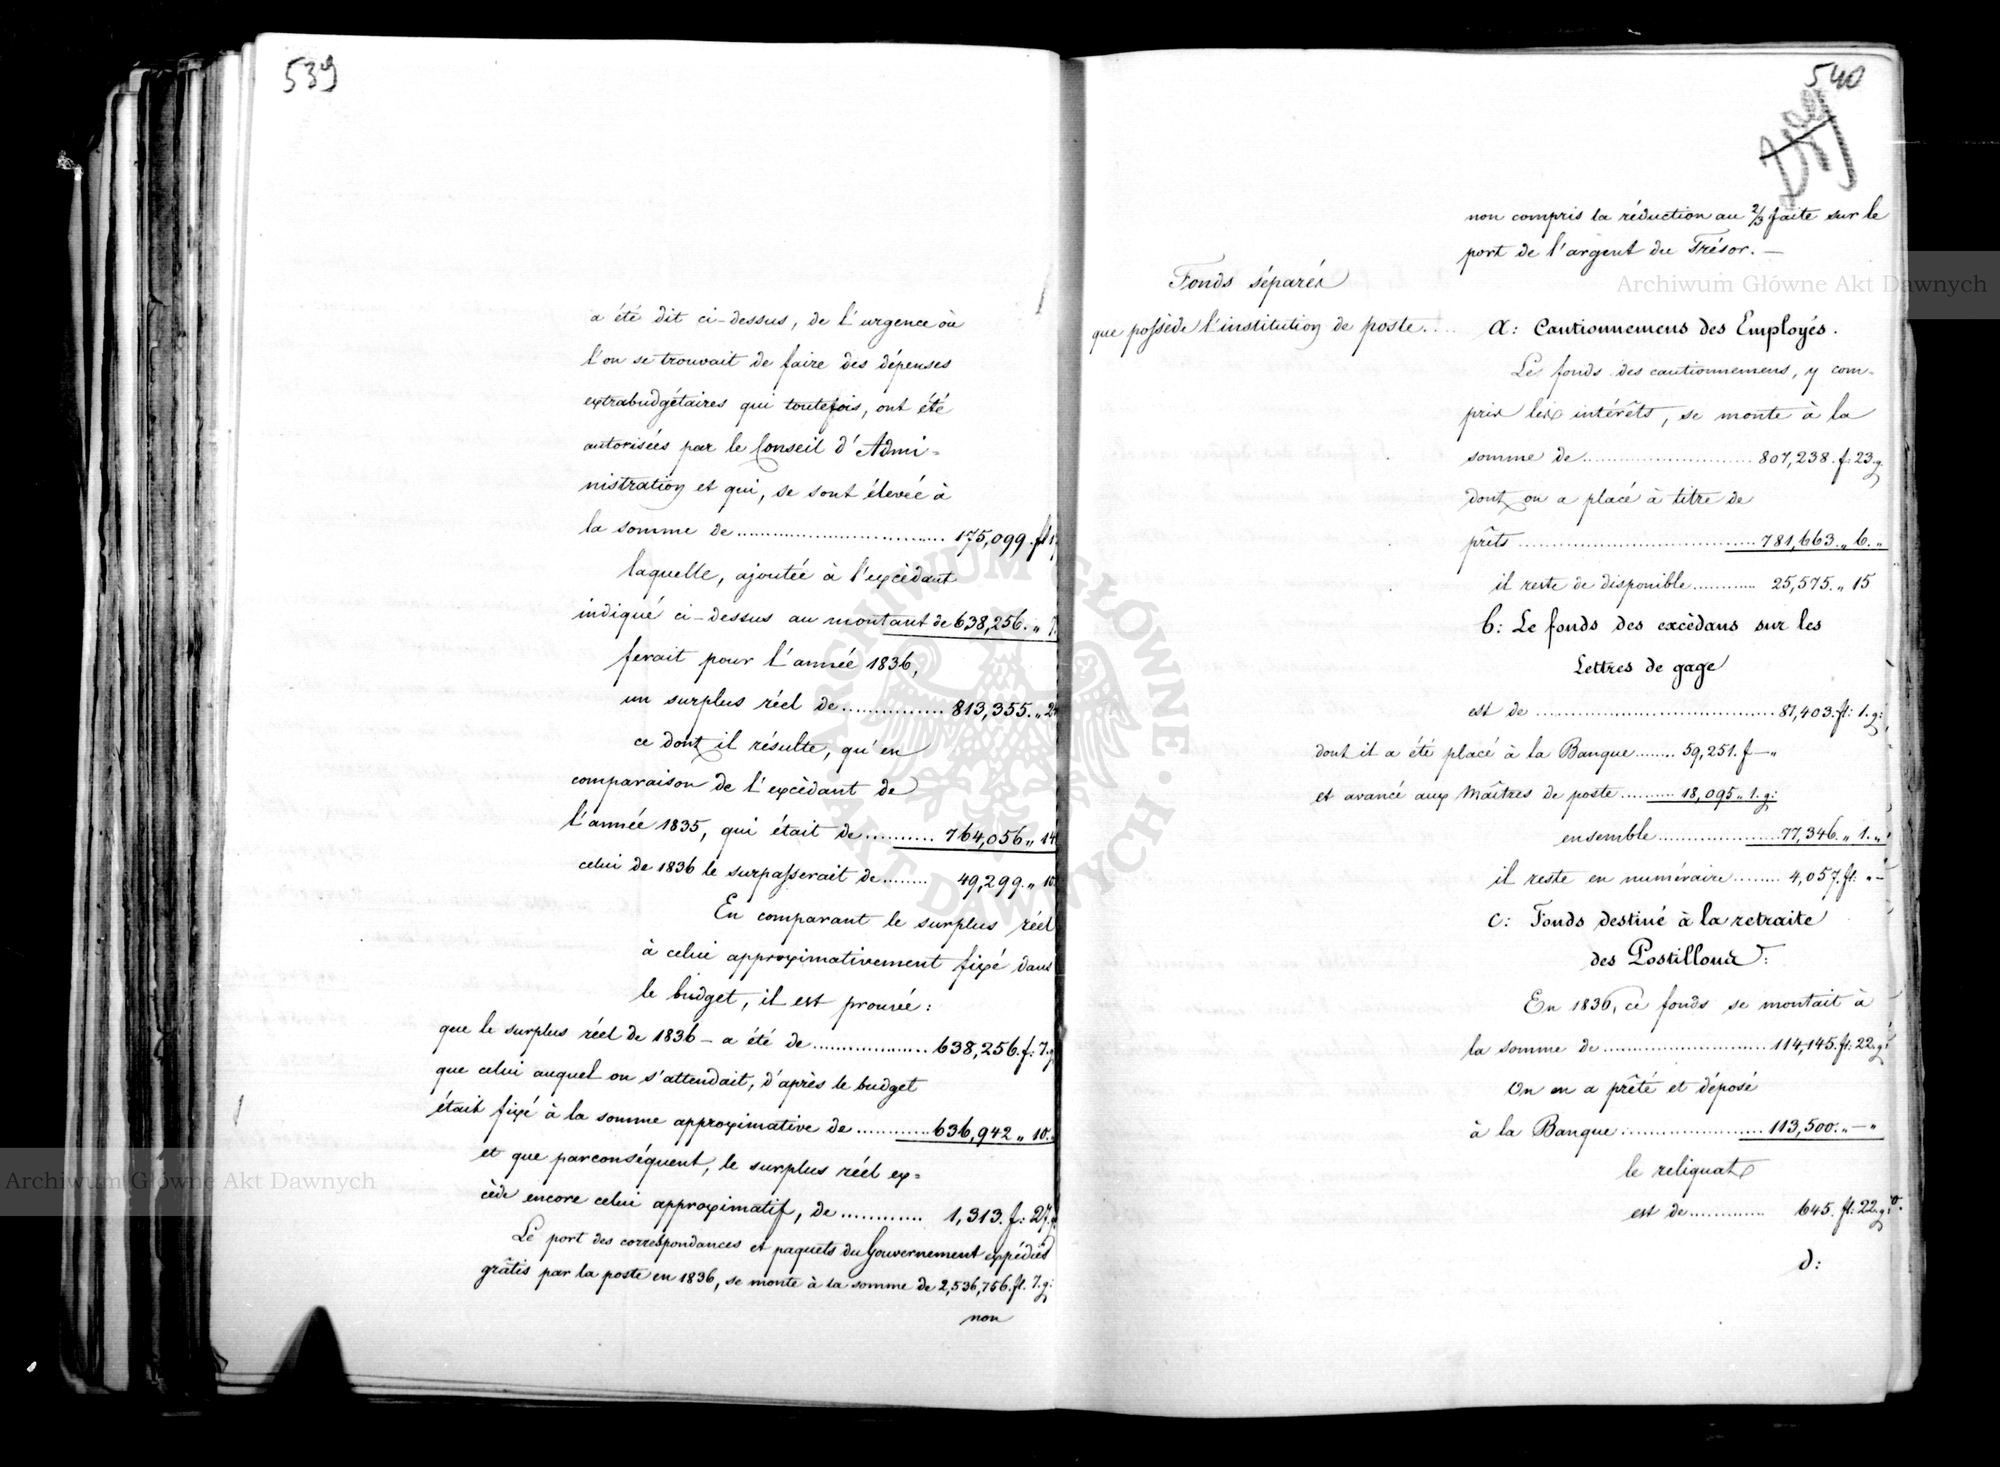 539
a été dit ci-dessus, de l'urgence où
l'on se trouvait de faire des dépenses
extrabudgétaires qui toutefois, ont été
autorisées par le Conseil d'Admi-
nistration et qui, se sont élevée à
la somme de .......... 175,099. fl
laquelle, ajoutée à l'excédant
indiqué ci-dessus au montant de 638,256. " 7.
ferait pour l'année 1836,
un surplus réel de .......... 813,355. " 2
ce dont il résulte, qu'en
comparaison de l'excédant de
l'année 1835, qui était de .......... 764,056 " 14
celui de 1836 le surpasserait de ........ 49,299. " 10
En comparant le surplus réel
à celui approximativement fixé dans
le budget, il est prouvé:
que le surplus réel de 1836 - a été de .......... 638,256. f: 7. g
que celui auquel on s'attendait, d'après le budget
était fixé à la somme approximative de .......... 636,942 " 10. "
et que parconséquent, le surplus réel ex-
cède encore celui approximatif, de .......... 1,313. f: 27. g
Le port des correspondances et paquets du Gouvernement expédiés
grâtis par la poste en 1836, se monte à la somme de 2,536,756. fl. 7. g:
non
540
non compris la réduction au 2/3 faite sur le
port de l'argent du Trésor. —
Fonds séparés
que possède l'institution de poste. . . .
a: Cautionnemens des Employés.
Le fonds des cautionnemens, y com-
pris les intérêts, se monte à la
somme de .......... 807,238. f: 23. g
dont on a placé à titre de
prêts .......... 781,663. " 6. "
il reste de disponible .......... 25,575. " 15
b: Le fonds des excédans sur les
Lettres de gage
est de .......... 81,403. fl: 1. g:
dont il a été placé à la Banque ........ 59,251. f — "
et avancé aux Maîtres de poste .......... 18,095 " 1. g:
ensemble .......... 77,346. " 1. "
il reste en numéraire ......... 4,057. fl: " —
c: Fonds destiné à la retraite
des Postillons:
En 1836, ce fonds se montait à
la somme de .......... 114,145. fl: 22. g:
On en a prêté et déposé
à la Banque .......... 113,500. " — "
le reliquat
est de .......... 645. fl: 22. g:
d:
Archiwum Główne Akt Dawnych
Archiwum Główne Akt Dawnych
ARCHIWUM GŁÓWNE · AKT DAWNYCH ·